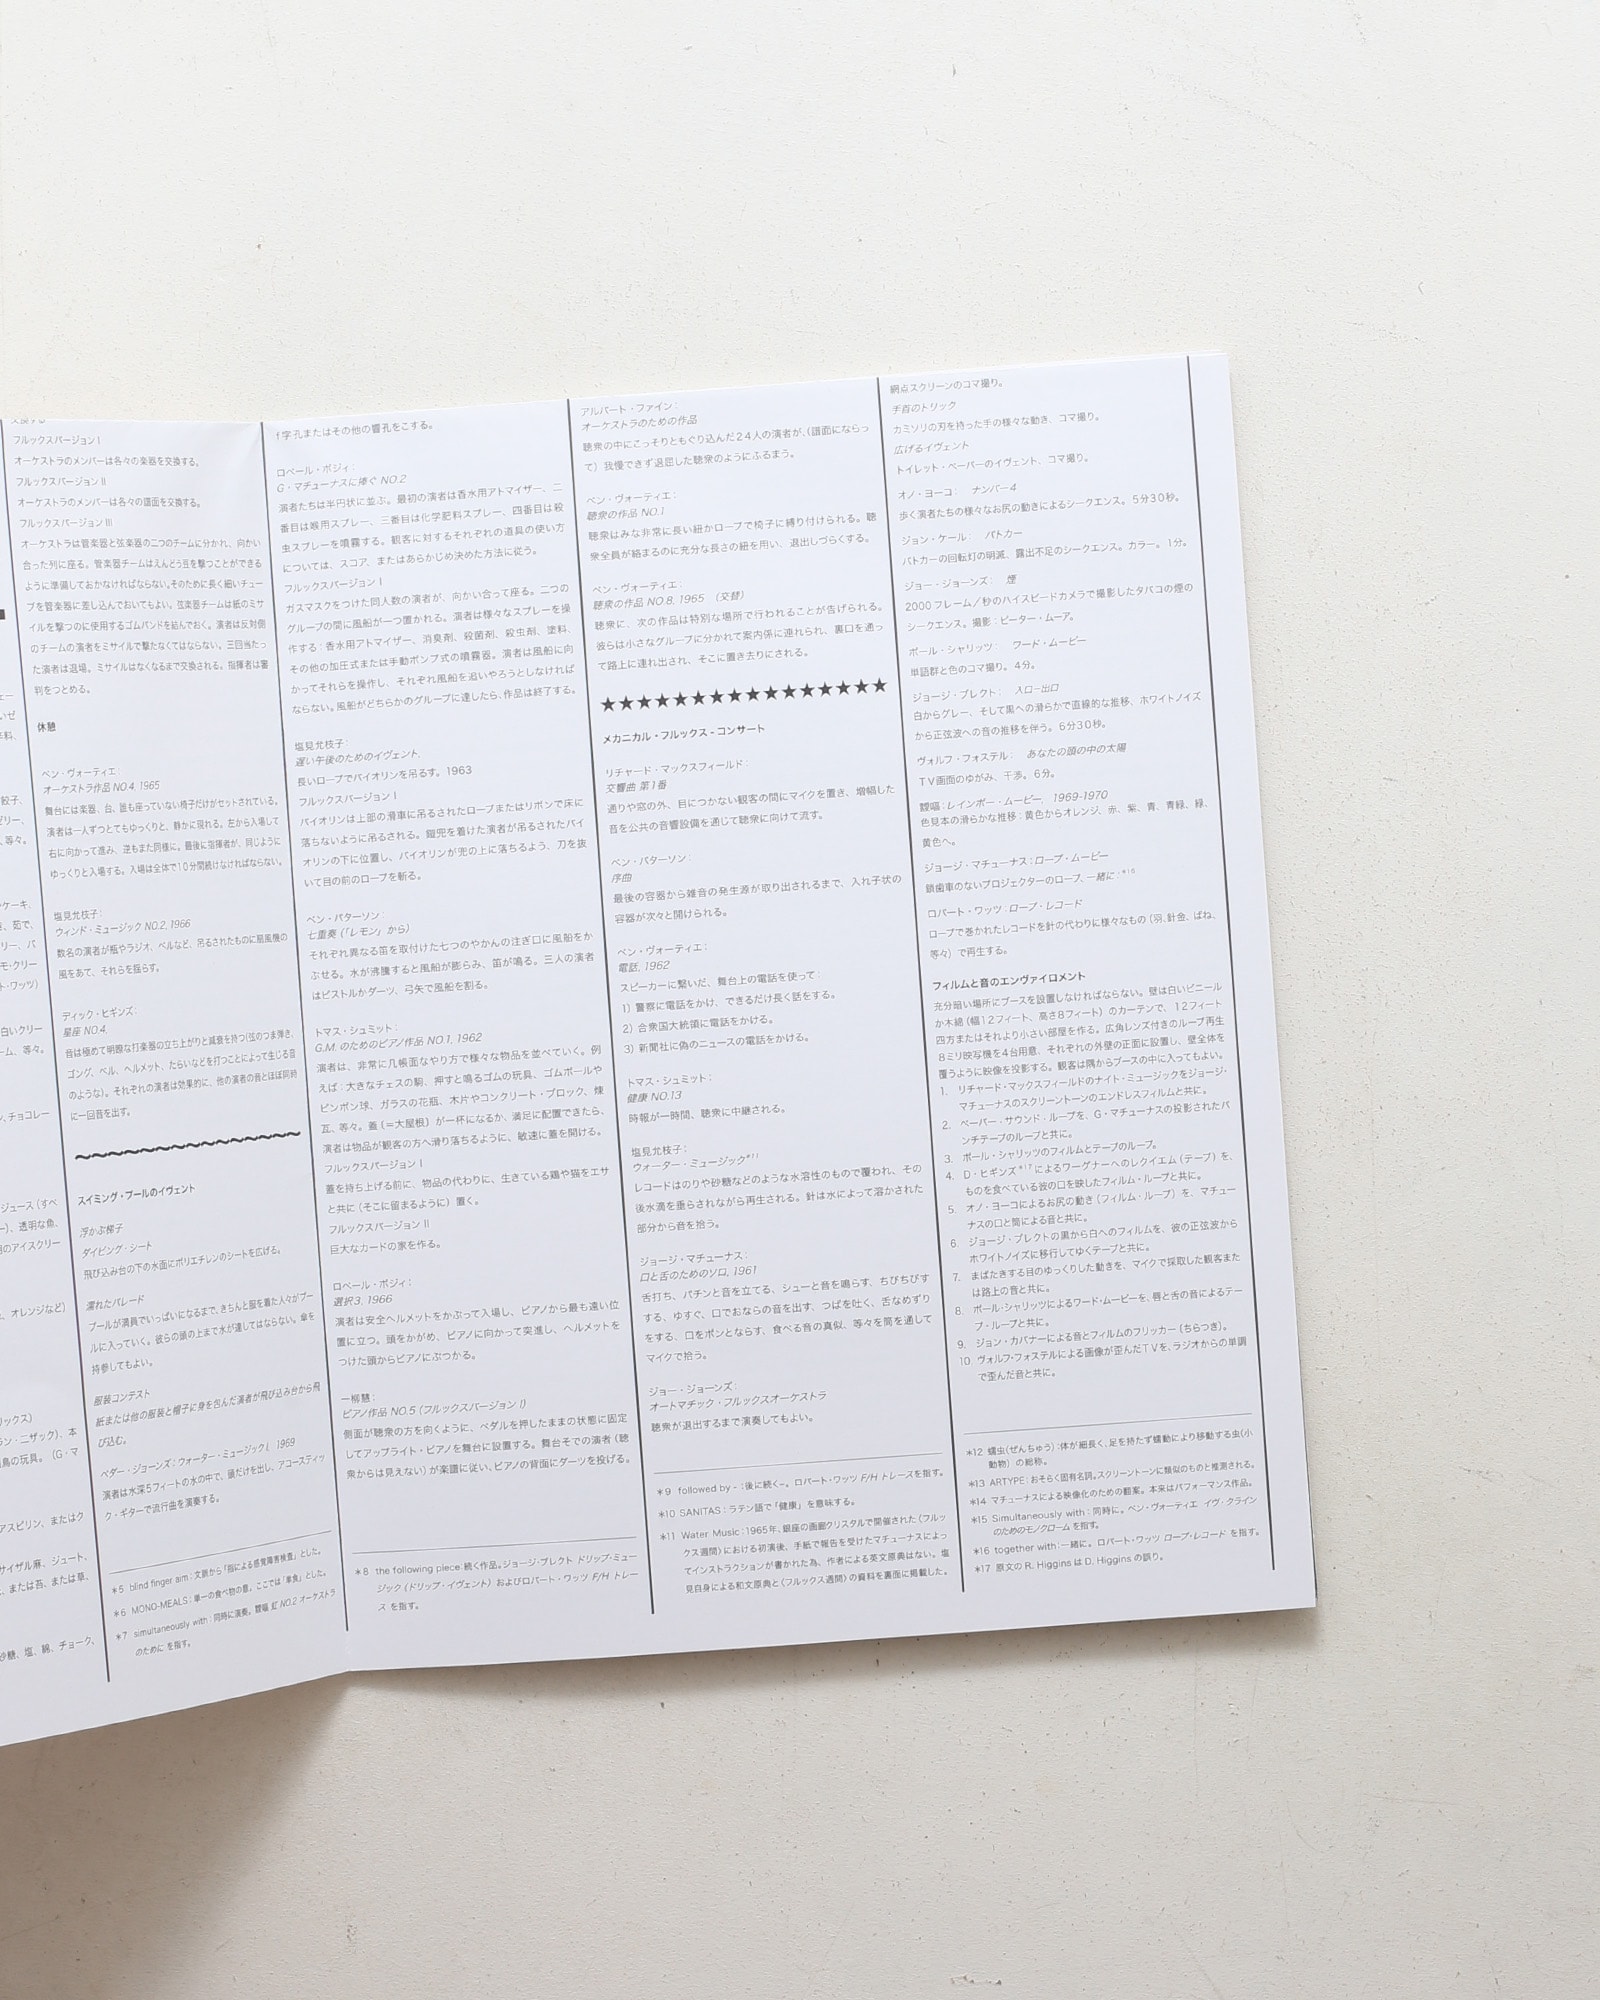 フルックスバージョン I
オーケストラのメンバーは各々の楽器を交換する。
フルックスバージョン II
オーケストラのメンバーは各々の譜面を交換する。
フルックスバージョン III
オーケストラは管楽器と弦楽器の二つのチームに分かれ、向かい
合った列に座る。管楽器チームはえんどう豆を撃つことができる
ように準備しておかなければならない。そのために長く細いチュー
ブを管楽器に差し込んでおいてもよい。弦楽器チームは紙のミサ
イルを撃つのに使用するゴムバンドを結んでおく。演者は反対側
のチームの演者をミサイルで撃たなくてはならない。三回当たっ
た演者は退場。ミサイルはなくなるまで交換される。指揮者は審
判をつとめる。
休憩
ベン・ヴォーティエ：
オーケストラ作品 NO.4, 1965
舞台には楽器、台、誰も座っていない椅子だけがセットされている。
演者は一人ずつとてもゆっくりと、静かに現れる。左から入場して
右に向かって進み、逆もまた同様に。最後に指揮者が、同じように
ゆっくりと入場する。入場は全体で10分間続けなければならない。
塩見允枝子：
ウィンド・ミュージック NO.2, 1966
数名の演者が瓶やラジオ、ベルなど、吊るされたものに扇風機の
風をあて、それらを揺らす。
ディック・ヒギンズ：
星座 NO.4,
音は極めて明瞭な打楽器の立ち上がりと減衰を持つ(弦のつま弾き、
ゴング、ベル、ヘルメット、たらいなどを打つことによって生じる音
のような)。それぞれの演者は効果的に、他の演者の音とほぼ同時
に一回音を出す。
スイミング・プールのイヴェント
浮かぶ梯子
ダイビング・シート
飛び込み台の下の水面にポリエチレンのシートを広げる。
濡れたパレード
プールが満員でいっぱいになるまで、きちんと服を着た人々がプー
ルに入っていく。彼らの頭の上まで水が達してはならない。傘を
持参してもよい。
服装コンテスト
紙または他の服装と帽子に身を包んだ演者が飛び込み台から飛
び込む。
ペダー・ジョーンズ：ウォーター・ミュージック I, 1969
演者は水深5フィートの水の中で、頭だけを出し、アコースティッ
ク・ギターで流行曲を演奏する。
*5 blind finger aim：文脈から「指による感覚障害検査」とした。
*6 MONO-MEALS：単一の食べ物の意。ここでは「単食」とした。
*7 simultaneously with：同時に演奏。靉嘔 虹 NO.2 オーケストラ
のために を指す。
f字孔またはその他の響孔をこする。
ロベール・ボジィ：
G・マチューナスに捧ぐ NO.2
演者たちは半円状に並ぶ。最初の演者は香水用アトマイザー、二
番目は喉用スプレー、三番目は化学肥料スプレー、四番目は殺
虫スプレーを噴霧する。観客に対するそれぞれの道具の使い方
については、スコア、またはあらかじめ決めた方法に従う。
フルックスバージョン I
ガスマスクをつけた同人数の演者が、向かい合って座る。二つの
グループの間に風船が一つ置かれる。演者は様々なスプレーを操
作する：香水用アトマイザー、消臭剤、殺菌剤、殺虫剤、塗料、
その他の加圧式または手動ポンプ式の噴霧器。演者は風船に向
かってそれらを操作し、それぞれ風船を追いやろうとしなければ
ならない。風船がどちらかのグループに達したら、作品は終了する。
塩見允枝子：
遅い午後のためのイヴェント,
長いロープでバイオリンを吊るす。1963
フルックスバージョン I
バイオリンは上部の滑車に吊るされたロープまたはリボンで床に
落ちないように吊るされる。鎧兜を着けた演者が吊るされたバイ
オリンの下に位置し、バイオリンが兜の上に落ちるよう、刀を抜
いて目の前のロープを斬る。
ベン・パターソン：
七重奏 (「レモン」から)
それぞれ異なる笛を取付けた七つのやかんの注ぎ口に風船をか
ぶせる。水が沸騰すると風船が膨らみ、笛が鳴る。三人の演者
はピストルかダーツ、弓矢で風船を割る。
トマス・シュミット：
G.M. のためのピアノ作品 NO.1, 1962
演者は、非常に几帳面なやり方で様々な物品を並べていく。例
えば：大きなチェスの駒、押すと鳴るゴムの玩具、ゴムボールや
ピンポン球、ガラスの花瓶、木片やコンクリート・ブロック、煉
瓦、等々。蓋〔＝大屋根〕が一杯になるか、満足に配置できたら、
演者は物品が観客の方へ滑り落ちるように、敏速に蓋を開ける。
フルックスバージョン I
蓋を持ち上げる前に、物品の代わりに、生きている鶏や猫をエサ
と共に (そこに留まるように) 置く。
フルックスバージョン II
巨大なカードの家を作る。
ロベール・ボジィ：
選択 3, 1966
演者は安全ヘルメットをかぶって入場し、ピアノから最も遠い位
置に立つ。頭をかがめ、ピアノに向かって突進し、ヘルメットを
つけた頭からピアノにぶつかる。
一柳慧：
ピアノ作品 NO.5 (フルックスバージョン I)
側面が聴衆の方を向くように、ペダルを押したままの状態に固定
してアップライト・ピアノを舞台に設置する。舞台そでの演者 (聴
衆からは見えない) が楽譜に従い、ピアノの背面にダーツを投げる。
*8 the following piece：続く作品。ジョージ・ブレクト ドリップ・ミュー
ジック (ドリップ・イヴェント) およびロバート・ワッツ F/H トレー
ス を指す。
アルバート・ファイン：
オーケストラのための作品
聴衆の中にこっそりともぐり込んだ24人の演者が、(譜面にならっ
て) 我慢できず退屈した聴衆のようにふるまう。
ベン・ヴォーティエ：
聴衆の作品 NO.1
聴衆はみな非常に長い紐かロープで椅子に縛り付けられる。聴
衆全員が絡まるのに充分な長さの紐を用い、退出しづらくする。
ベン・ヴォーティエ：
聴衆の作品 NO.8, 1965 （交替）
聴衆に、次の作品は特別な場所で行われることが告げられる。
彼らは小さなグループに分かれて案内係に連れられ、裏口を通っ
て路上に連れ出され、そこに置き去りにされる。
★★★★★★★★★★★★★★★★
メカニカル・フルックス - コンサート
リチャード・マックスフィールド：
交響曲 第1番
通りや窓の外、目につかない観客の間にマイクを置き、増幅した
音を公共の音響設備を通じて聴衆に向けて流す。
ベン・パターソン：
序曲
最後の容器から雑音の発生源が取り出されるまで、入れ子状の
容器が次々と開けられる。
ベン・ヴォーティエ：
電話, 1962
スピーカーに繋いだ、舞台上の電話を使って：
1) 警察に電話をかけ、できるだけ長く話をする。
2) 合衆国大統領に電話をかける。
3) 新聞社に偽のニュースの電話をかける。
トマス・シュミット：
健康 NO.13
時報が一時間、聴衆に中継される。
塩見允枝子：
ウォーター・ミュージック*11
レコードはのりや砂糖などのような水溶性のもので覆われ、その
後水滴を垂らされながら再生される。針は水によって溶かされた
部分から音を拾う。
ジョージ・マチューナス：
口と舌のためのソロ, 1961
舌打ち、パチンと音を立てる、シューと音を鳴らす、ちびちびす
する、ゆすぐ、口でおならの音を出す、つばを吐く、舌なめずり
をする、口をポンとならす、食べる音の真似、等々を筒を通して
マイクで拾う。
ジョー・ジョーンズ：
オートマチック・フルックスオーケストラ
聴衆が退出するまで演奏してもよい。
*9 followed by -：後に続く-。ロバート・ワッツ F/H トレースを指す。
*10 SANITAS：ラテン語で「健康」を意味する。
*11 Water Music：1965年、銀座の画廊クリスタルで開催された〈フルッ
クス週間〉における初演後、手紙で報告を受けたマチューナスによっ
てインストラクションが書かれた為、作者による英文原典はない。塩
見自身による和文原典と〈フルックス週間〉の資料を裏面に掲載した。
網点スクリーンのコマ撮り。
手首のトリック
カミソリの刃を持った手の様々な動き、コマ撮り。
広げるイヴェント
トイレット・ペーパーのイヴェント、コマ撮り。
オノ・ヨーコ： ナンバー4
歩く演者たちの様々なお尻の動きによるシークエンス。5分30秒。
ジョン・ケール： パトカー
パトカーの回転灯の明滅、露出不足のシークエンス。カラー。1分。
ジョー・ジョーンズ： 煙
2000フレーム／秒のハイスピードカメラで撮影したタバコの煙の
シークエンス。撮影：ピーター・ムーア。
ポール・シャリッツ： ワード・ムービー
単語群と色のコマ撮り。4分。
ジョージ・ブレクト： 入口－出口
白からグレー、そして黒への滑らかで直線的な推移、ホワイトノイズ
から正弦波への音の推移を伴う。6分30秒。
ヴォルフ・フォステル： あなたの頭の中の太陽
TV画面のゆがみ、干渉。6分。
靉嘔：レインボー・ムービー, 1969-1970
色見本の滑らかな推移：黄色からオレンジ、赤、紫、青、青緑、緑、
黄色へ。
ジョージ・マチューナス：ループ・ムービー
鎖歯車のないプロジェクターのループ、一緒に：*16
ロバート・ワッツ：ロープ・レコード
ロープで巻かれたレコードを針の代わりに様々なもの (羽、針金、ばね、
等々) で再生する。
フィルムと音のエンヴァイロメント
充分暗い場所にブースを設置しなければならない。壁は白いビニール
か木綿 (幅12フィート、高さ8フィート) のカーテンで、12フィート
四方またはそれより小さい部屋を作る。広角レンズ付きのループ再生
8ミリ映写機を4台用意、それぞれの外壁の正面に設置し、壁全体を
覆うように映像を投影する。観客は隅からブースの中に入ってもよい。
1. リチャード・マックスフィールドのナイト・ミュージックをジョージ・
マチューナスのスクリーントーンのエンドレスフィルムと共に。
2. ペーパー・サウンド・ループを、G・マチューナスの投影されたパ
ンチテープのループと共に。
3. ポール・シャリッツのフィルムとテープのループ。
4. D・ヒギンズ*17によるワーグナーへのレクイエム (テープ) を、
ものを食べている彼の口を映したフィルム・ループと共に。
5. オノ・ヨーコによるお尻の動き (フィルム・ループ) を、マチュー
ナスの口と筒による音と共に。
6. ジョージ・ブレクトの黒から白へのフィルムを、彼の正弦波から
ホワイトノイズに移行してゆくテープと共に。
7. まばたきする目のゆっくりした動きを、マイクで採取した観客また
は路上の音と共に。
8. ポール・シャリッツによるワード・ムービーを、唇と舌の音によるテー
プ・ループと共に。
9. ジョン・カバナーによる音とフィルムのフリッカー (ちらつき)。
10. ヴォルフ・フォステルによる画像が歪んだTVを、ラジオからの単調
で歪んだ音と共に。
*12 蠕虫(ぜんちゅう)：体が細長く、足を持たず蠕動により移動する虫(小
動物) の総称。
*13 ARTYPE：おそらく固有名詞。スクリーントーンに類似のものと推測される。
*14 マチューナスによる映像化のための翻案。本来はパフォーマンス作品。
*15 Simultaneously with：同時に。ベン・ヴォーティエ イヴ・クライン
のためのモノクローム を指す。
*16 together with：一緒に。ロバート・ワッツ ロープ・レコード を指す。
*17 原文の R. Higgins は D. Higgins の誤り。